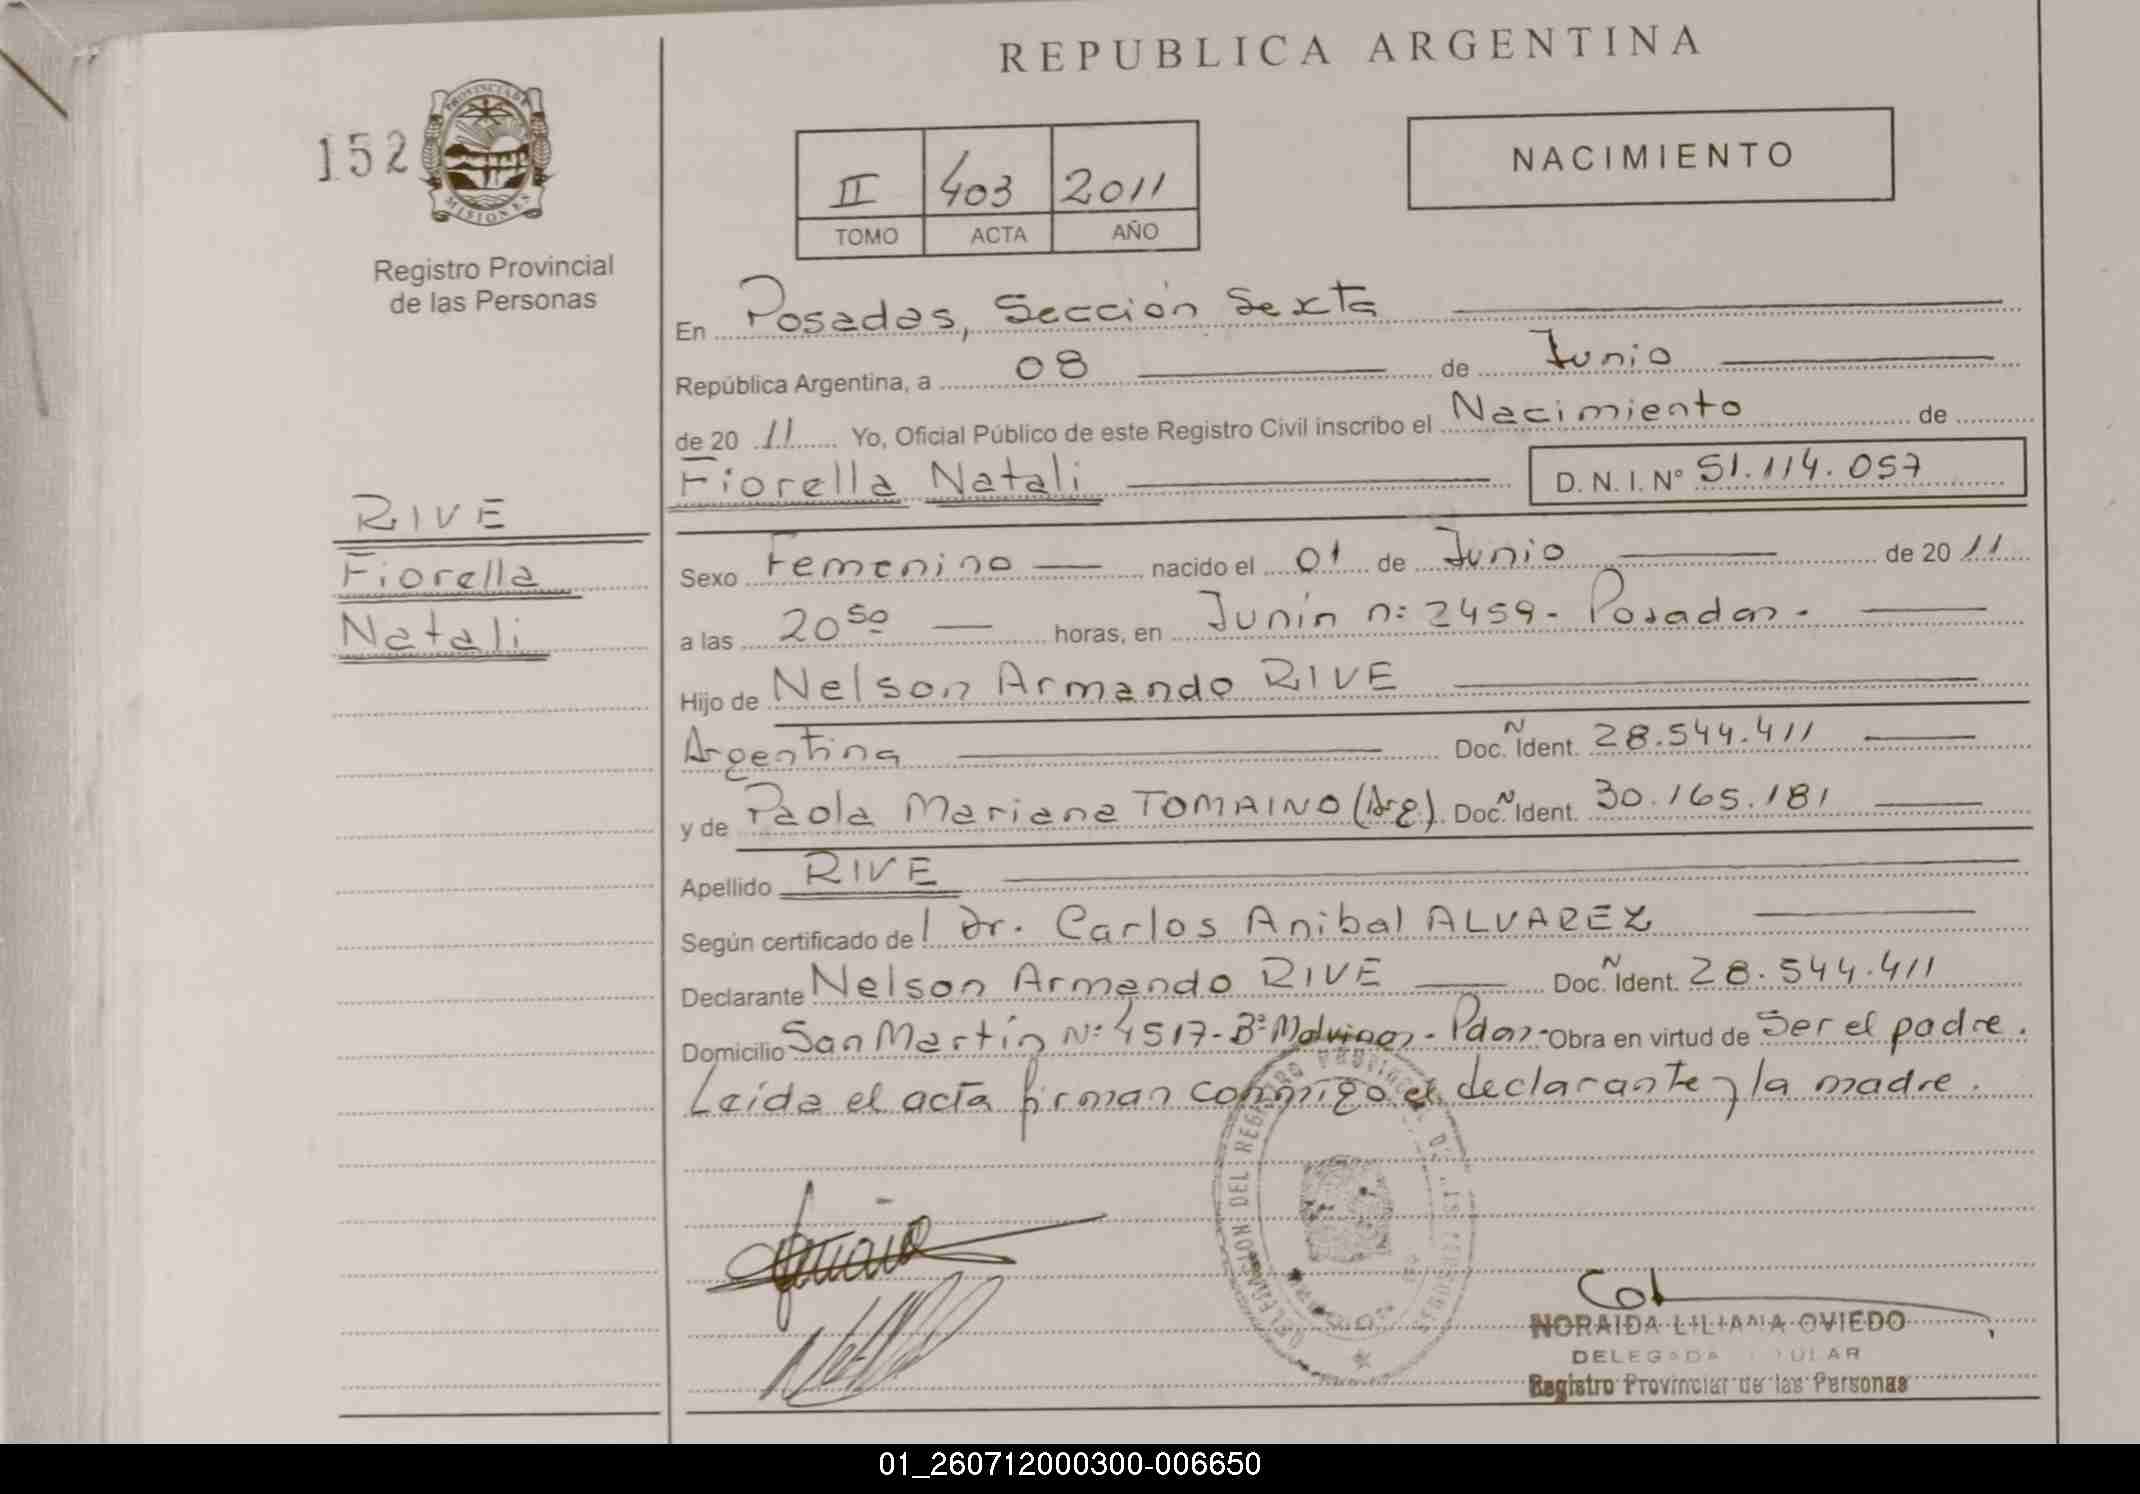 REPUBLICA ARGENTINA
152
PROVINCIA DE
MISIONES
Registro Provincial
de las Personas
II 403 2011
TOMO ACTA AÑO
NACIMIENTO
En Posadas, Sección Sexta
República Argentina, a 08 de Junio
de 20 11 Yo, Oficial Público de este Registro Civil inscribo el Nacimiento de
Fiorella Natali D. N. I. Nº 51.114.057
RIVE
Fiorella
Natali
Sexo Femenino nacido el 01 de Junio de 20 11
a las 20 50 horas, en Junín nº 2459 - Posadas -
Hijo de Nelson Armando RIVE
Argentina Doc. Ñ Ident. 28.544.411
y de Paola Mariana TOMAINO (Arg). Doc. Ñ Ident. 30.165.181
Apellido RIVE
Según certificado del Dr. Carlos Anibal ALVAREZ
Declarante Nelson Armando RIVE Doc. Ñ Ident. 28.544.411
Domicilio San Martín Nº 4517 - Bº Malvinas - Pdas - Obra en virtud de Ser el padre.
Leída el acta firman conmigo el declarante y la madre.
DELEGACION DEL REGISTRO PROVINCIAL DE
NORAIDA LILIANA OVIEDO
DELEGADA TITULAR
Registro Provincial de las Personas
01_260712000300-006650